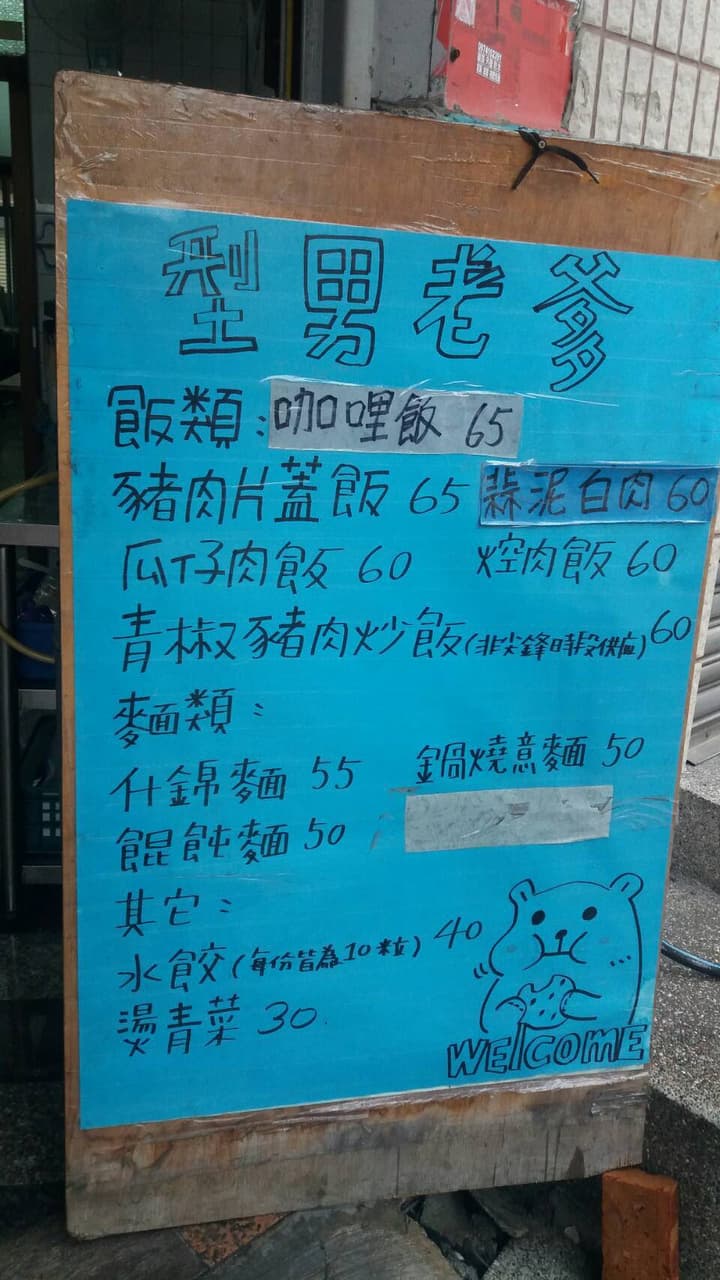 型男老爹
飯類：咖哩飯 65
豬肉片蓋飯 65 蒜泥白肉 60
瓜仔肉飯 60 焢肉飯 60
青椒豬肉炒飯(非尖鋒時段供应) 60
麵類：
什錦麵 55 鍋燒意麵 50
餛飩麵 50
其它：
水餃(每份皆為10粒) 40
燙青菜 30
WElCOmE